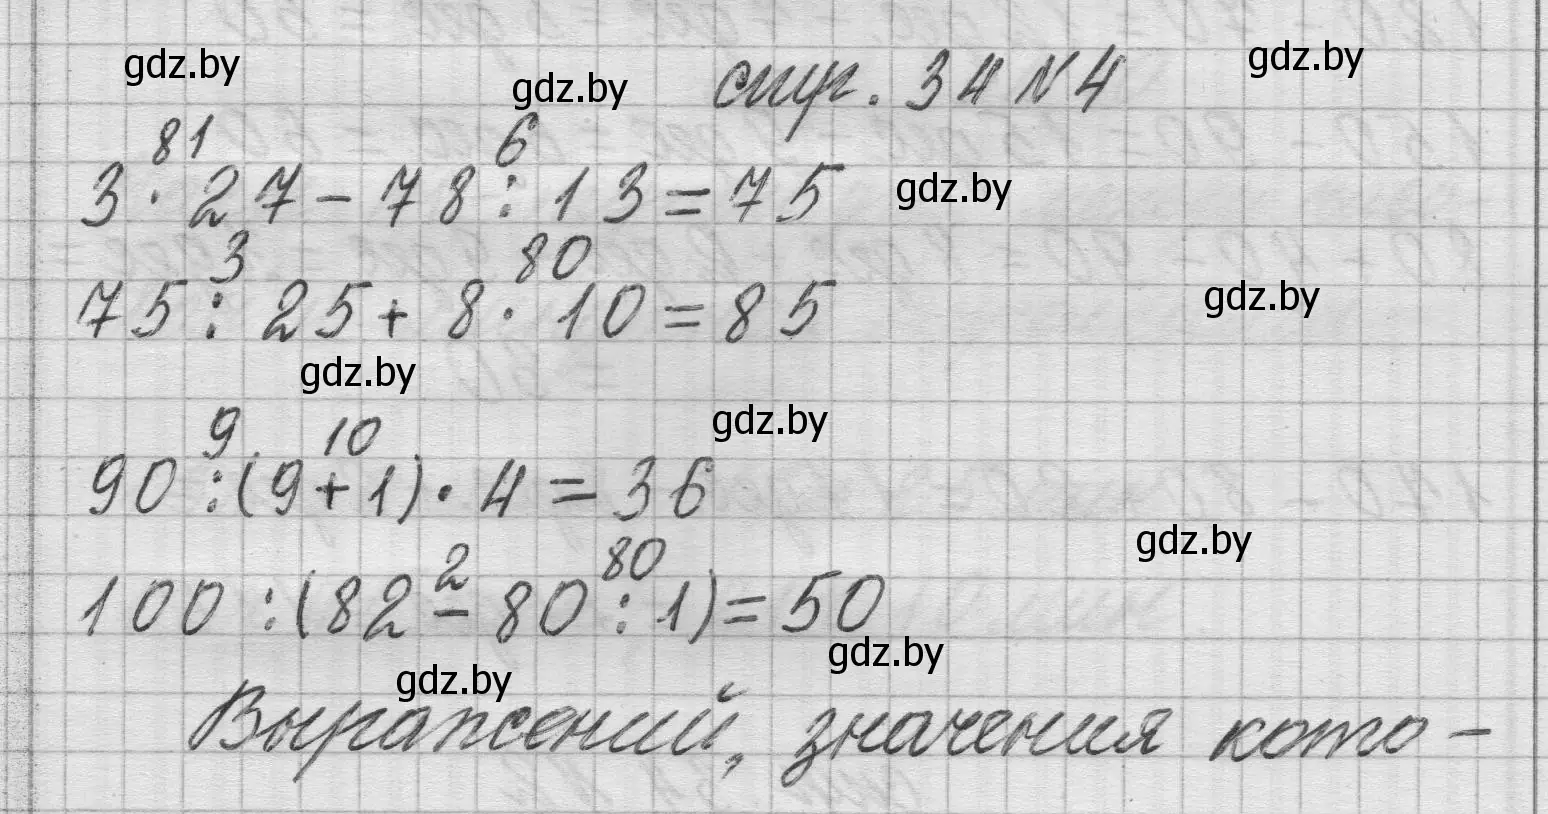 стр. 34 № 4
81 6
3 · 27 - 78 : 13 = 75
3 80
75 : 25 + 8 · 10 = 85
9 10
90 : (9 + 1) · 4 = 36
2 80
100 : (82 - 80 : 1) = 50
Выражений, значения кото-
gdz.by
gdz.by
gdz.by
gdz.by
gdz.by
gdz.by
gdz.by
gdz.by
gdz.by
gdz.by